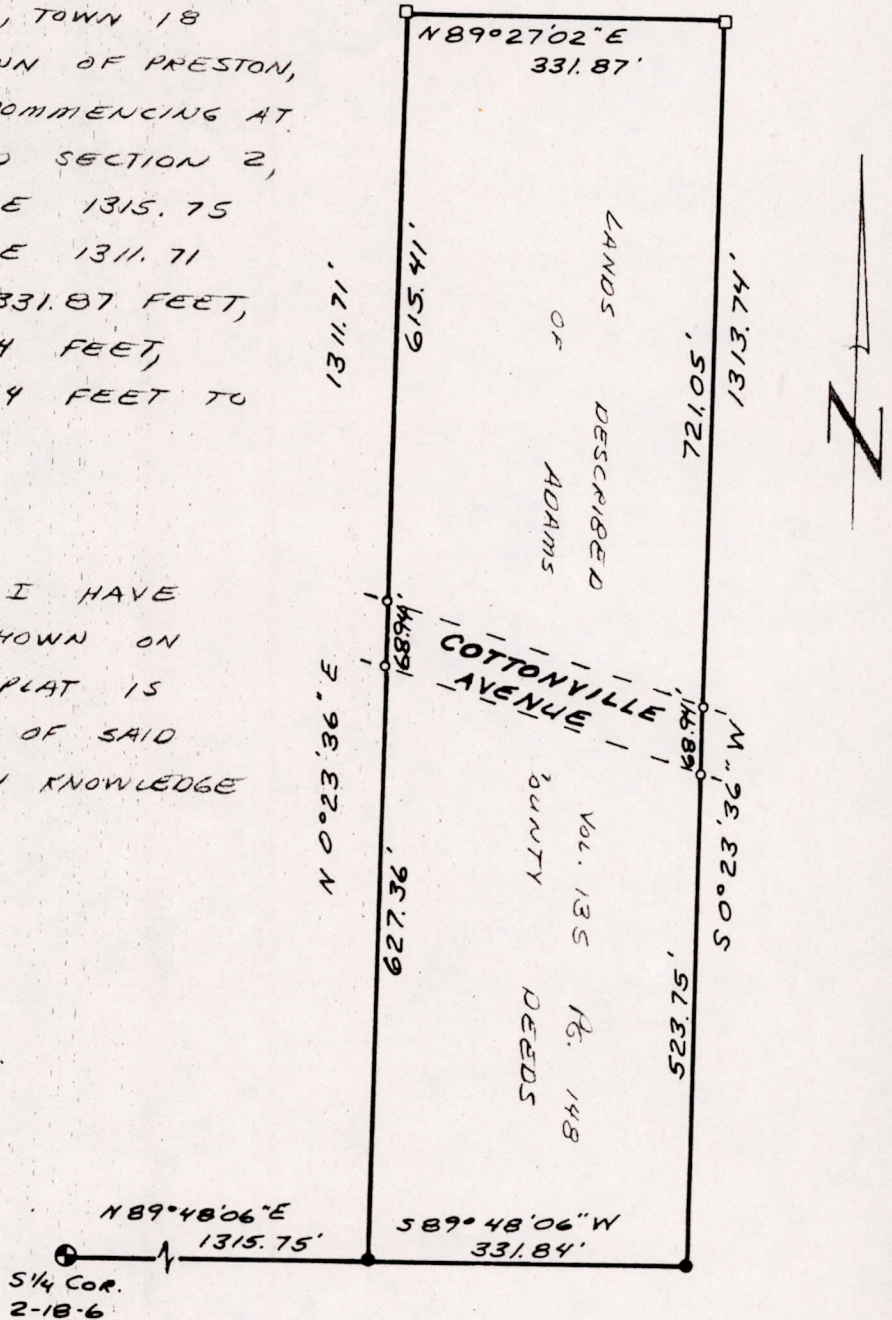 , TOWN 18
WN OF PRESTON,
OMMENCING AT
D SECTION 2,
E 1315.75
E 1311.71
331.87 FEET,
4 FEET,
4 FEET TO
I HAVE
HOWN ON
PLAT IS
OF SAID
KNOWLEDGE
N 89°27'02" E
331.87'
1311.71'
615.41'
LANDS DESCRIBED
OF ADAMS
721.05'
1313.74'
N
68.94'
COTTONVILLE
AVENUE
68.94'
N 0°23'36" E
627.36'
VOL. 135 PG. 148
OUNTY DEEDS
S 0°23'36" W
523.75'
N 89°48'06" E
1315.75'
S 89°48'06" W
331.84'
S 1/4 COR.
2-18-6